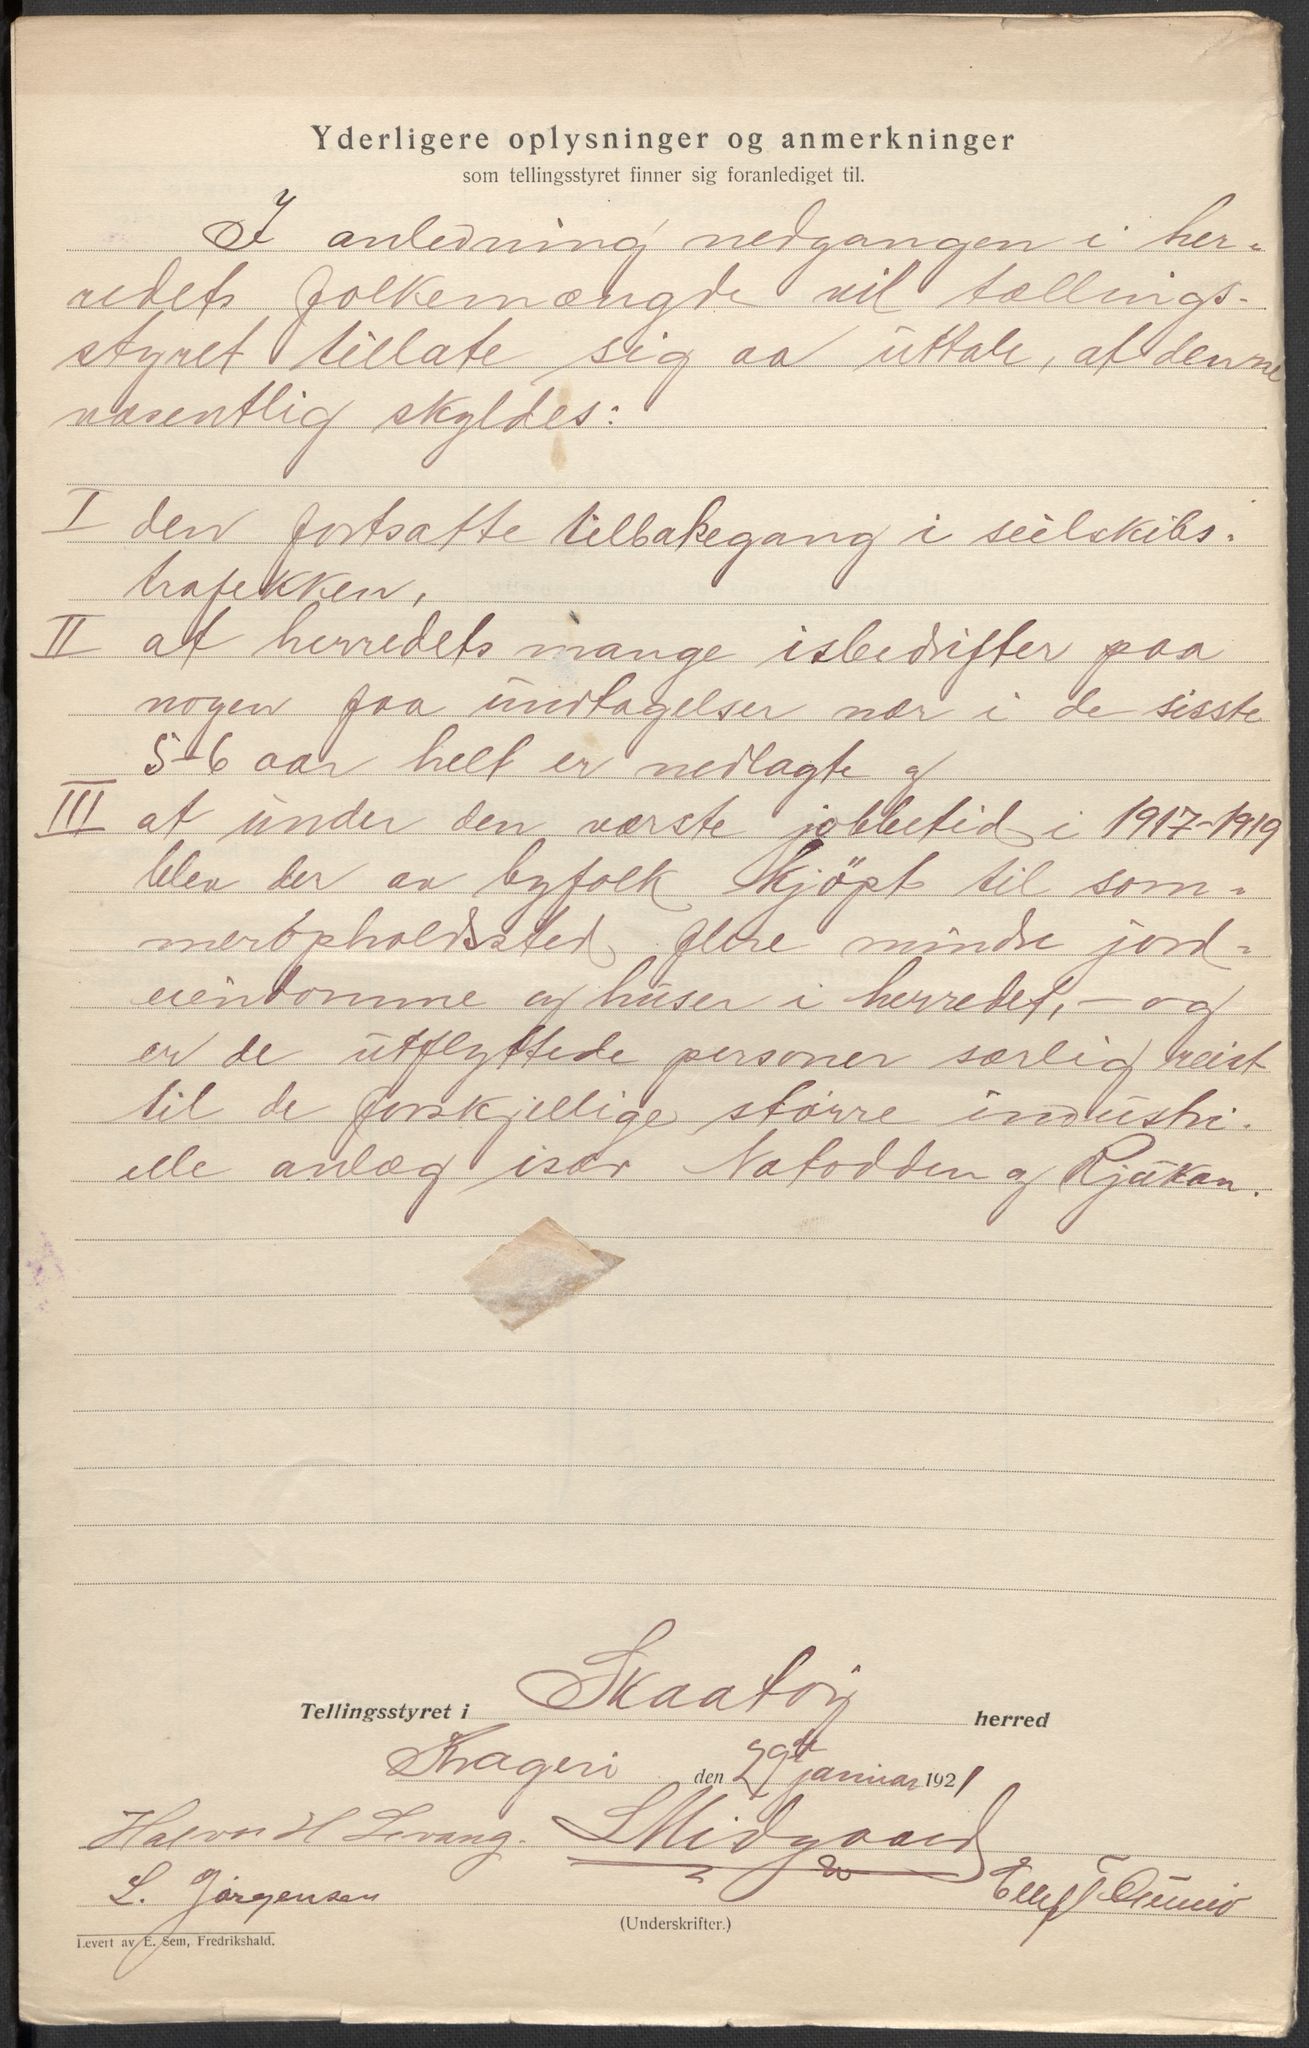 Yderligere oplysninger og anmerkninger
som tellingsstyret finner sig foranlediget til.
I anledning nedgangen i her-
redets folkemængde vil tællings-
styret tillate sig aa uttale, at denne
væsentlig skyldes:
I den fortsatte tilbakegang i seilskibs-
trafikken,
II at herredets mange isbedrifter paa
nogen faa undtagelser nær i de sisste
5-6 aar helt er nedlagte og
III at under den værste jobbetid i 1917-1919
blev der av byfolk kjøpt til som-
meropholdssted flere mindre jord-
eiendomme og huser i herredet, - og
er de utflyttede personer særlig reist
til de forskjellige større industri-
elle anlæg især Notodden og Rjukan.
Tellingsstyret i Skaatøy herred
Kragerø den 29de januar 1921
Halvor H Levang. S Midgaard
L. Jørgensen Ellef T.
(Underskrifter.)
Levert av E. Sem, Fredrikshald.